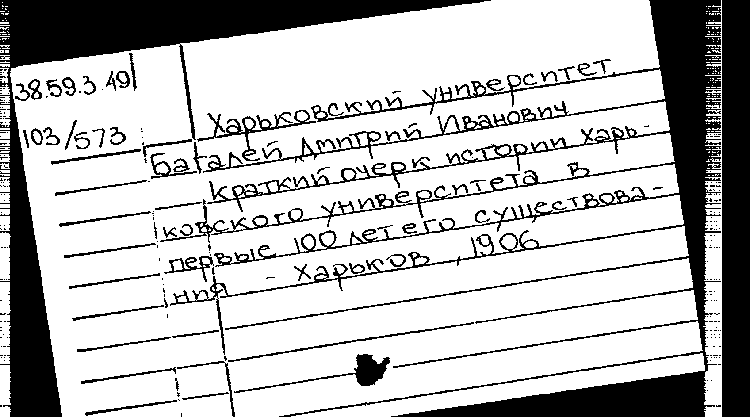 38.59.3.49
103/573
Харьковский университет.
Багалей, Дмитрий Иванович
Краткий очерк истории Харь-
ковского университета в
первые 100 лет его существова-
ния - Харьков, 1906